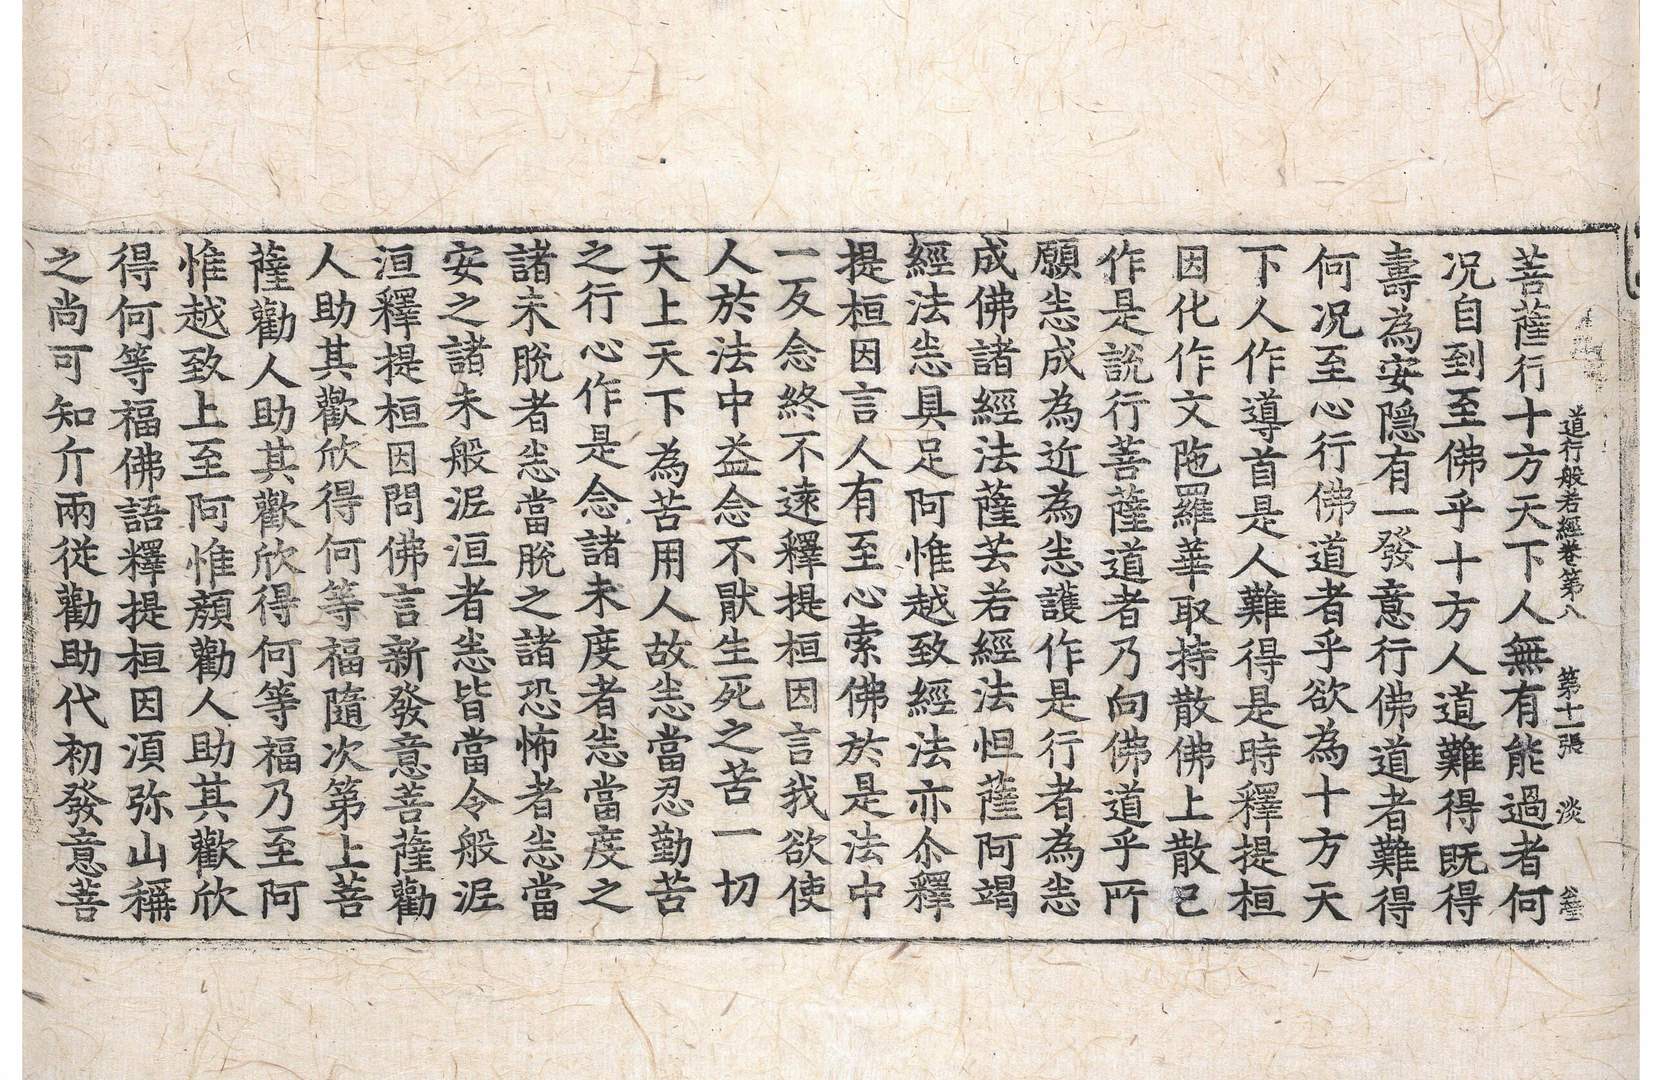 道行般若經卷第八 第十一張 淡
菩薩行十方天下人無有能過者何
况自到至佛乎十方人道難得既得
壽為安隠有一發意行佛道者難得
何况至心行佛道者乎欲為十方天
下人作導首是人難得是時釋提桓
因化作文陁羅華取持散佛上散已
作是說行菩薩道者乃向佛道乎所
願悉成為近為悉護作是行者為悉
成佛諸經法薩芸若經法怛薩阿竭
經法悉具足阿惟越致經法亦尒釋
提桓因言人有至心索佛於是法中
一反念終不逺釋提桓因言我欲使
人於法中益念不猒生死之苦一切
天上天下為苦用人故悉當忍勤苦
之行心作是念諸未度者悉當度之
諸未脫者悉當脫之諸恐怖者悉當
安之諸未般泥洹者悉皆當令般泥
洹釋提桓因問佛言新發意菩薩勸
人助其歡欣得何等福隨次第上菩
薩勸人助其歡欣得何等福乃至阿
惟越致上至阿惟顔勸人助其歡欣
得何等福佛語釋提桓因湏弥山稱
之尚可知斤兩從勸助代初發意菩